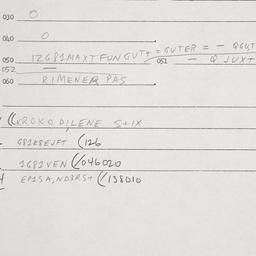 030 0
040 0
050 1Z681MAXTFUNGUT+=GUTER = - QGUT
052 — 052 - Q JUXT
060 RIMENER PAS
((KROKODILENE S+IX
G81K8EJFT (126
1681VEN (/046020
EP15A,ND3RS+ (/138010